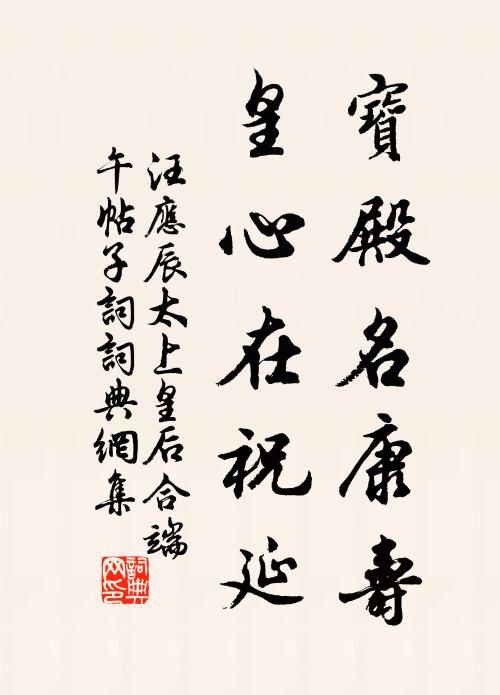 寶殿名康壽
皇心在祝延
汪應辰太上皇后合端
午帖子詞詞典網集
詞典
网印